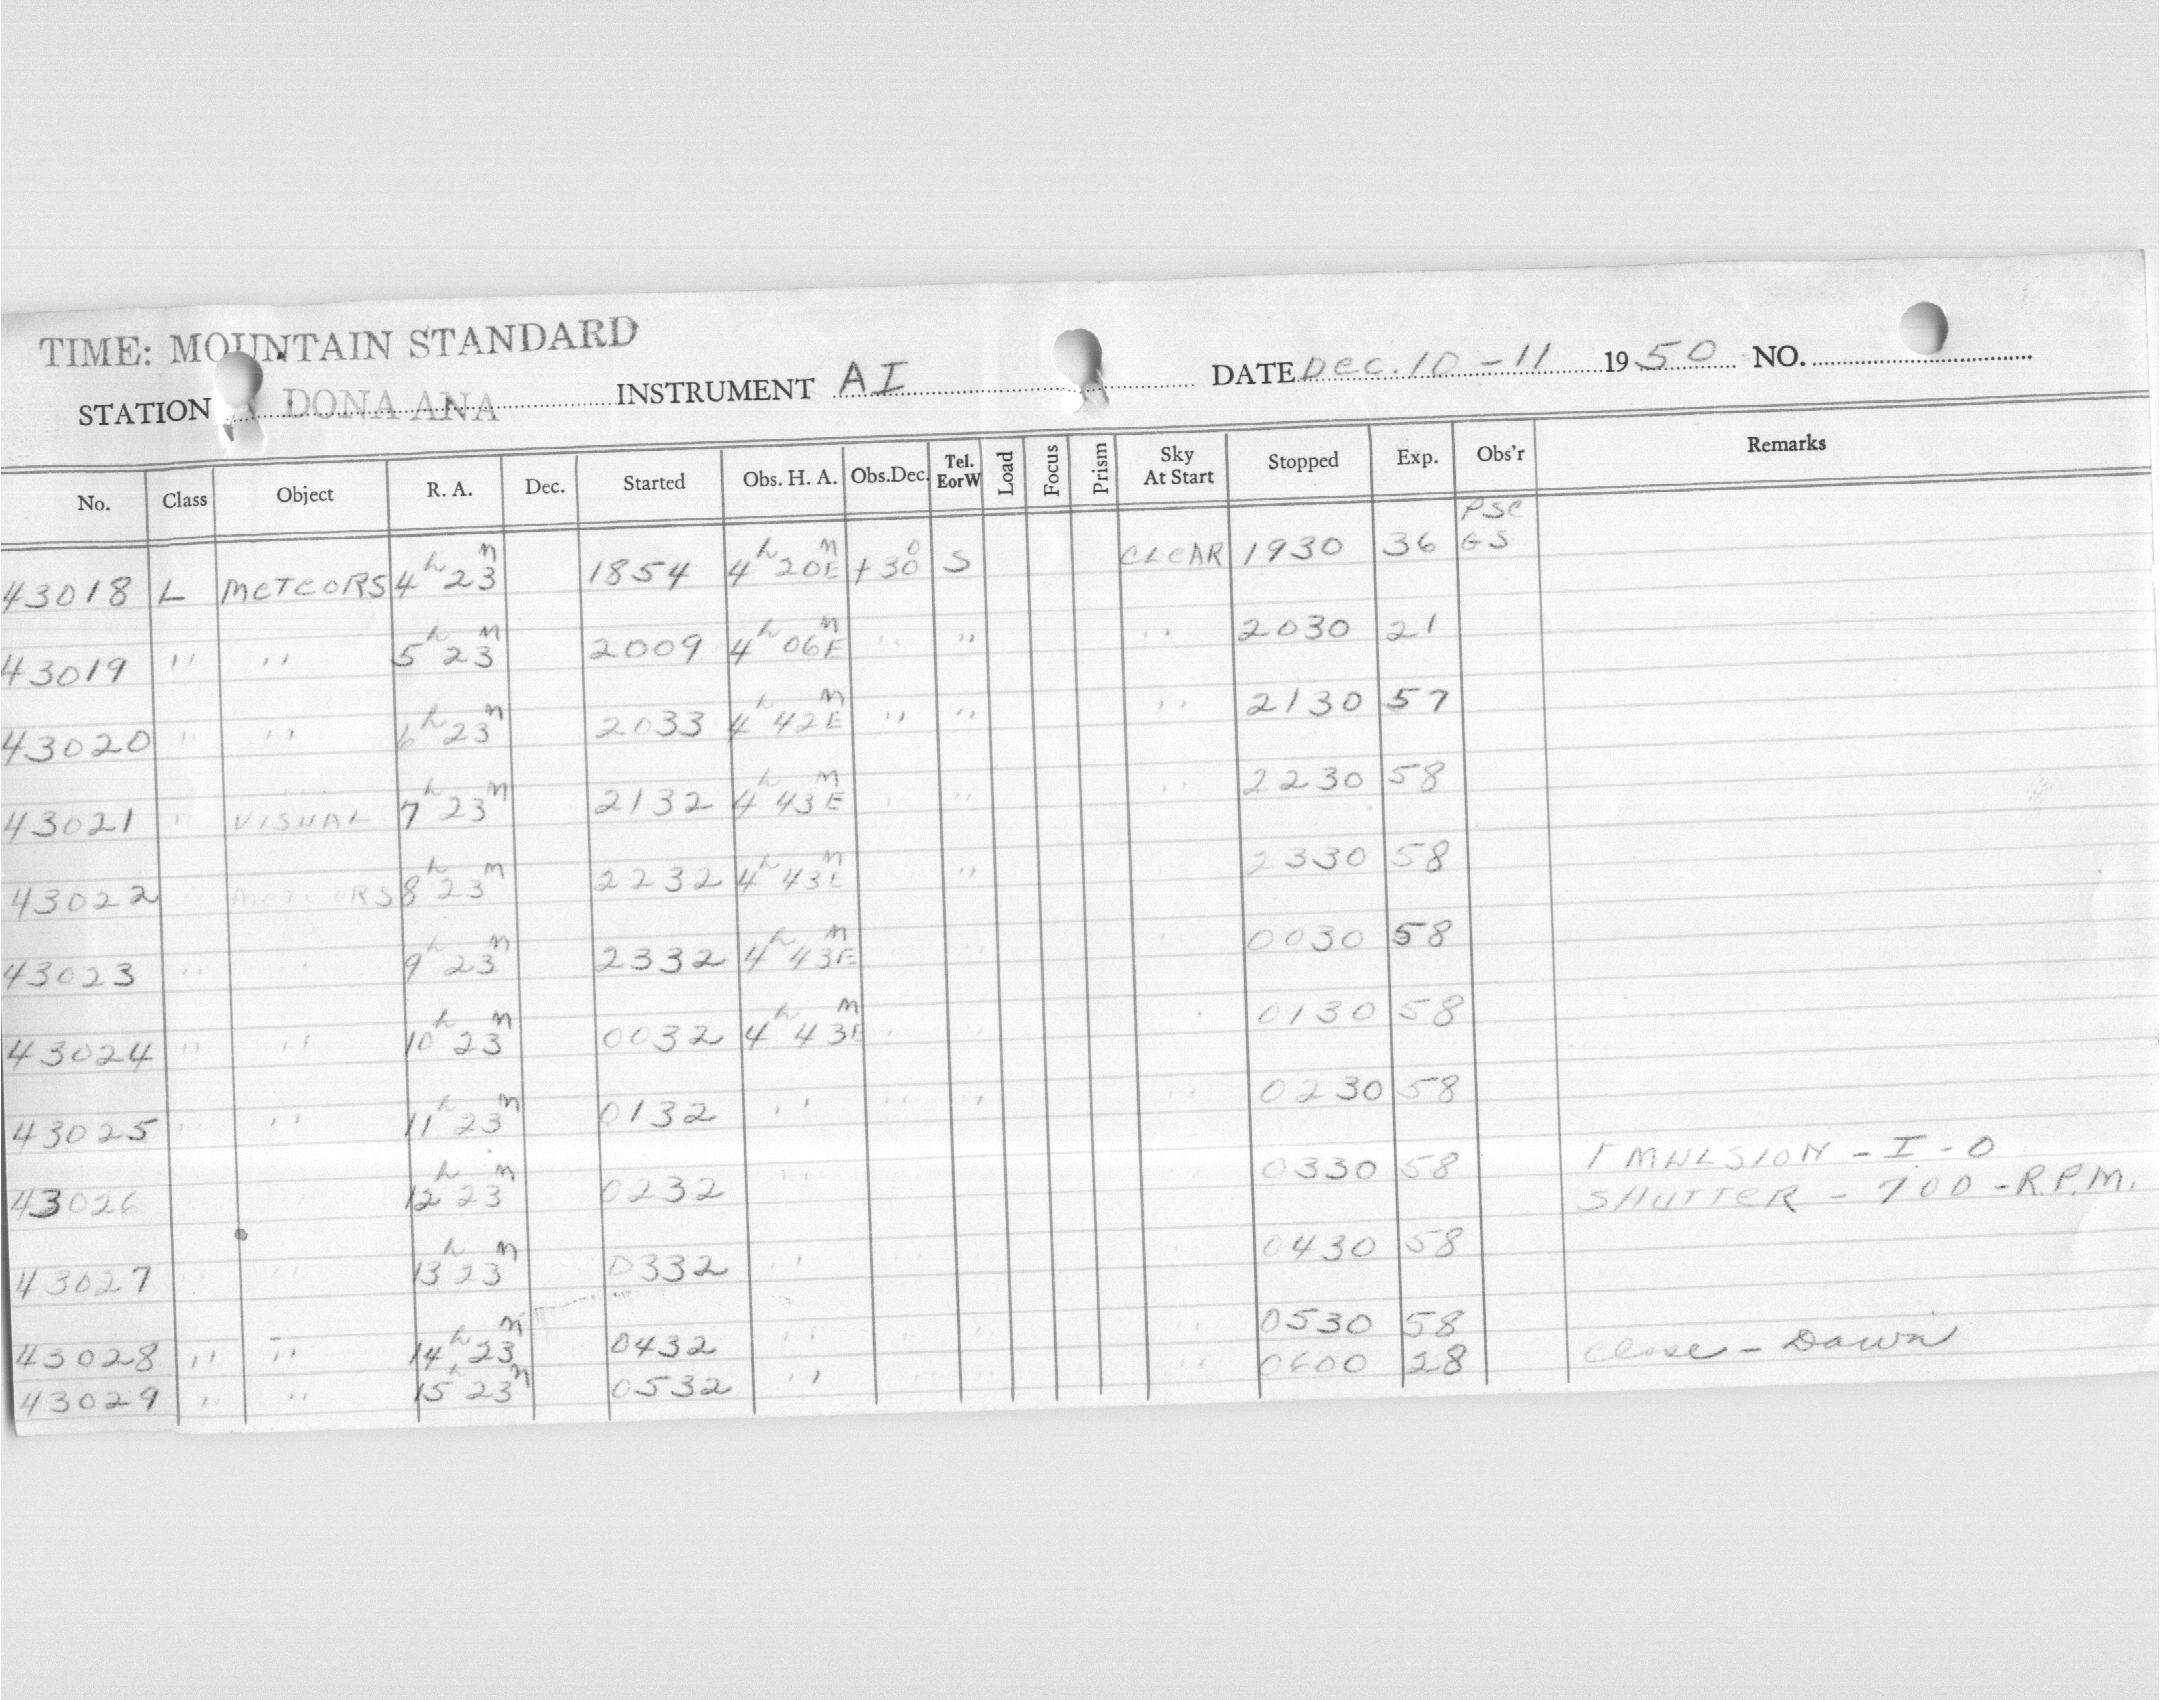 TIME: MOUNTAIN STANDARD
STATION DONA ANA INSTRUMENT AI DATE DEC. 10 - 11 1950 NO.
No. Class Object R. A. Dec. Started Obs. H. A. Obs.Dec. Tel. EorW Load Focus Prism Sky At Start Stopped Exp. Obs'r Remarks
PSC
43018 L METEORS 4h 23m 1854 4h 20mE +30° S CLEAR 1930 36 GS
43019 " " 5h 23m 2009 4h 06mE " " " 2030 21
43020 " " 6h 23m 2033 4h 42mE " " " 2130 57
43021 " VISUAL 7h 23m 2132 4h 43mE " " " 2230 58
43022 METEORS 8h 23m 2232 4h 43mE " 2330 58
43023 " " 9h 23m 2332 4h 43mE " " 0030 58
43024 " " 10h 23m 0032 4h 43mE " " " 0130 58
43025 " " 11h 23m 0132 " " " " 0230 58
EMULSION - I - O
43026 " 12h 23m 0232 " 0330 58 SHUTTER - 700 - R.P.M.
43027 " " 13h 23m 0332 " " " " 0430 58
43028 " " 14h 23m 0432 " " " " 0530 58
43029 " " 15h 23m 0532 " " " " 0600 28 Close - Dawn